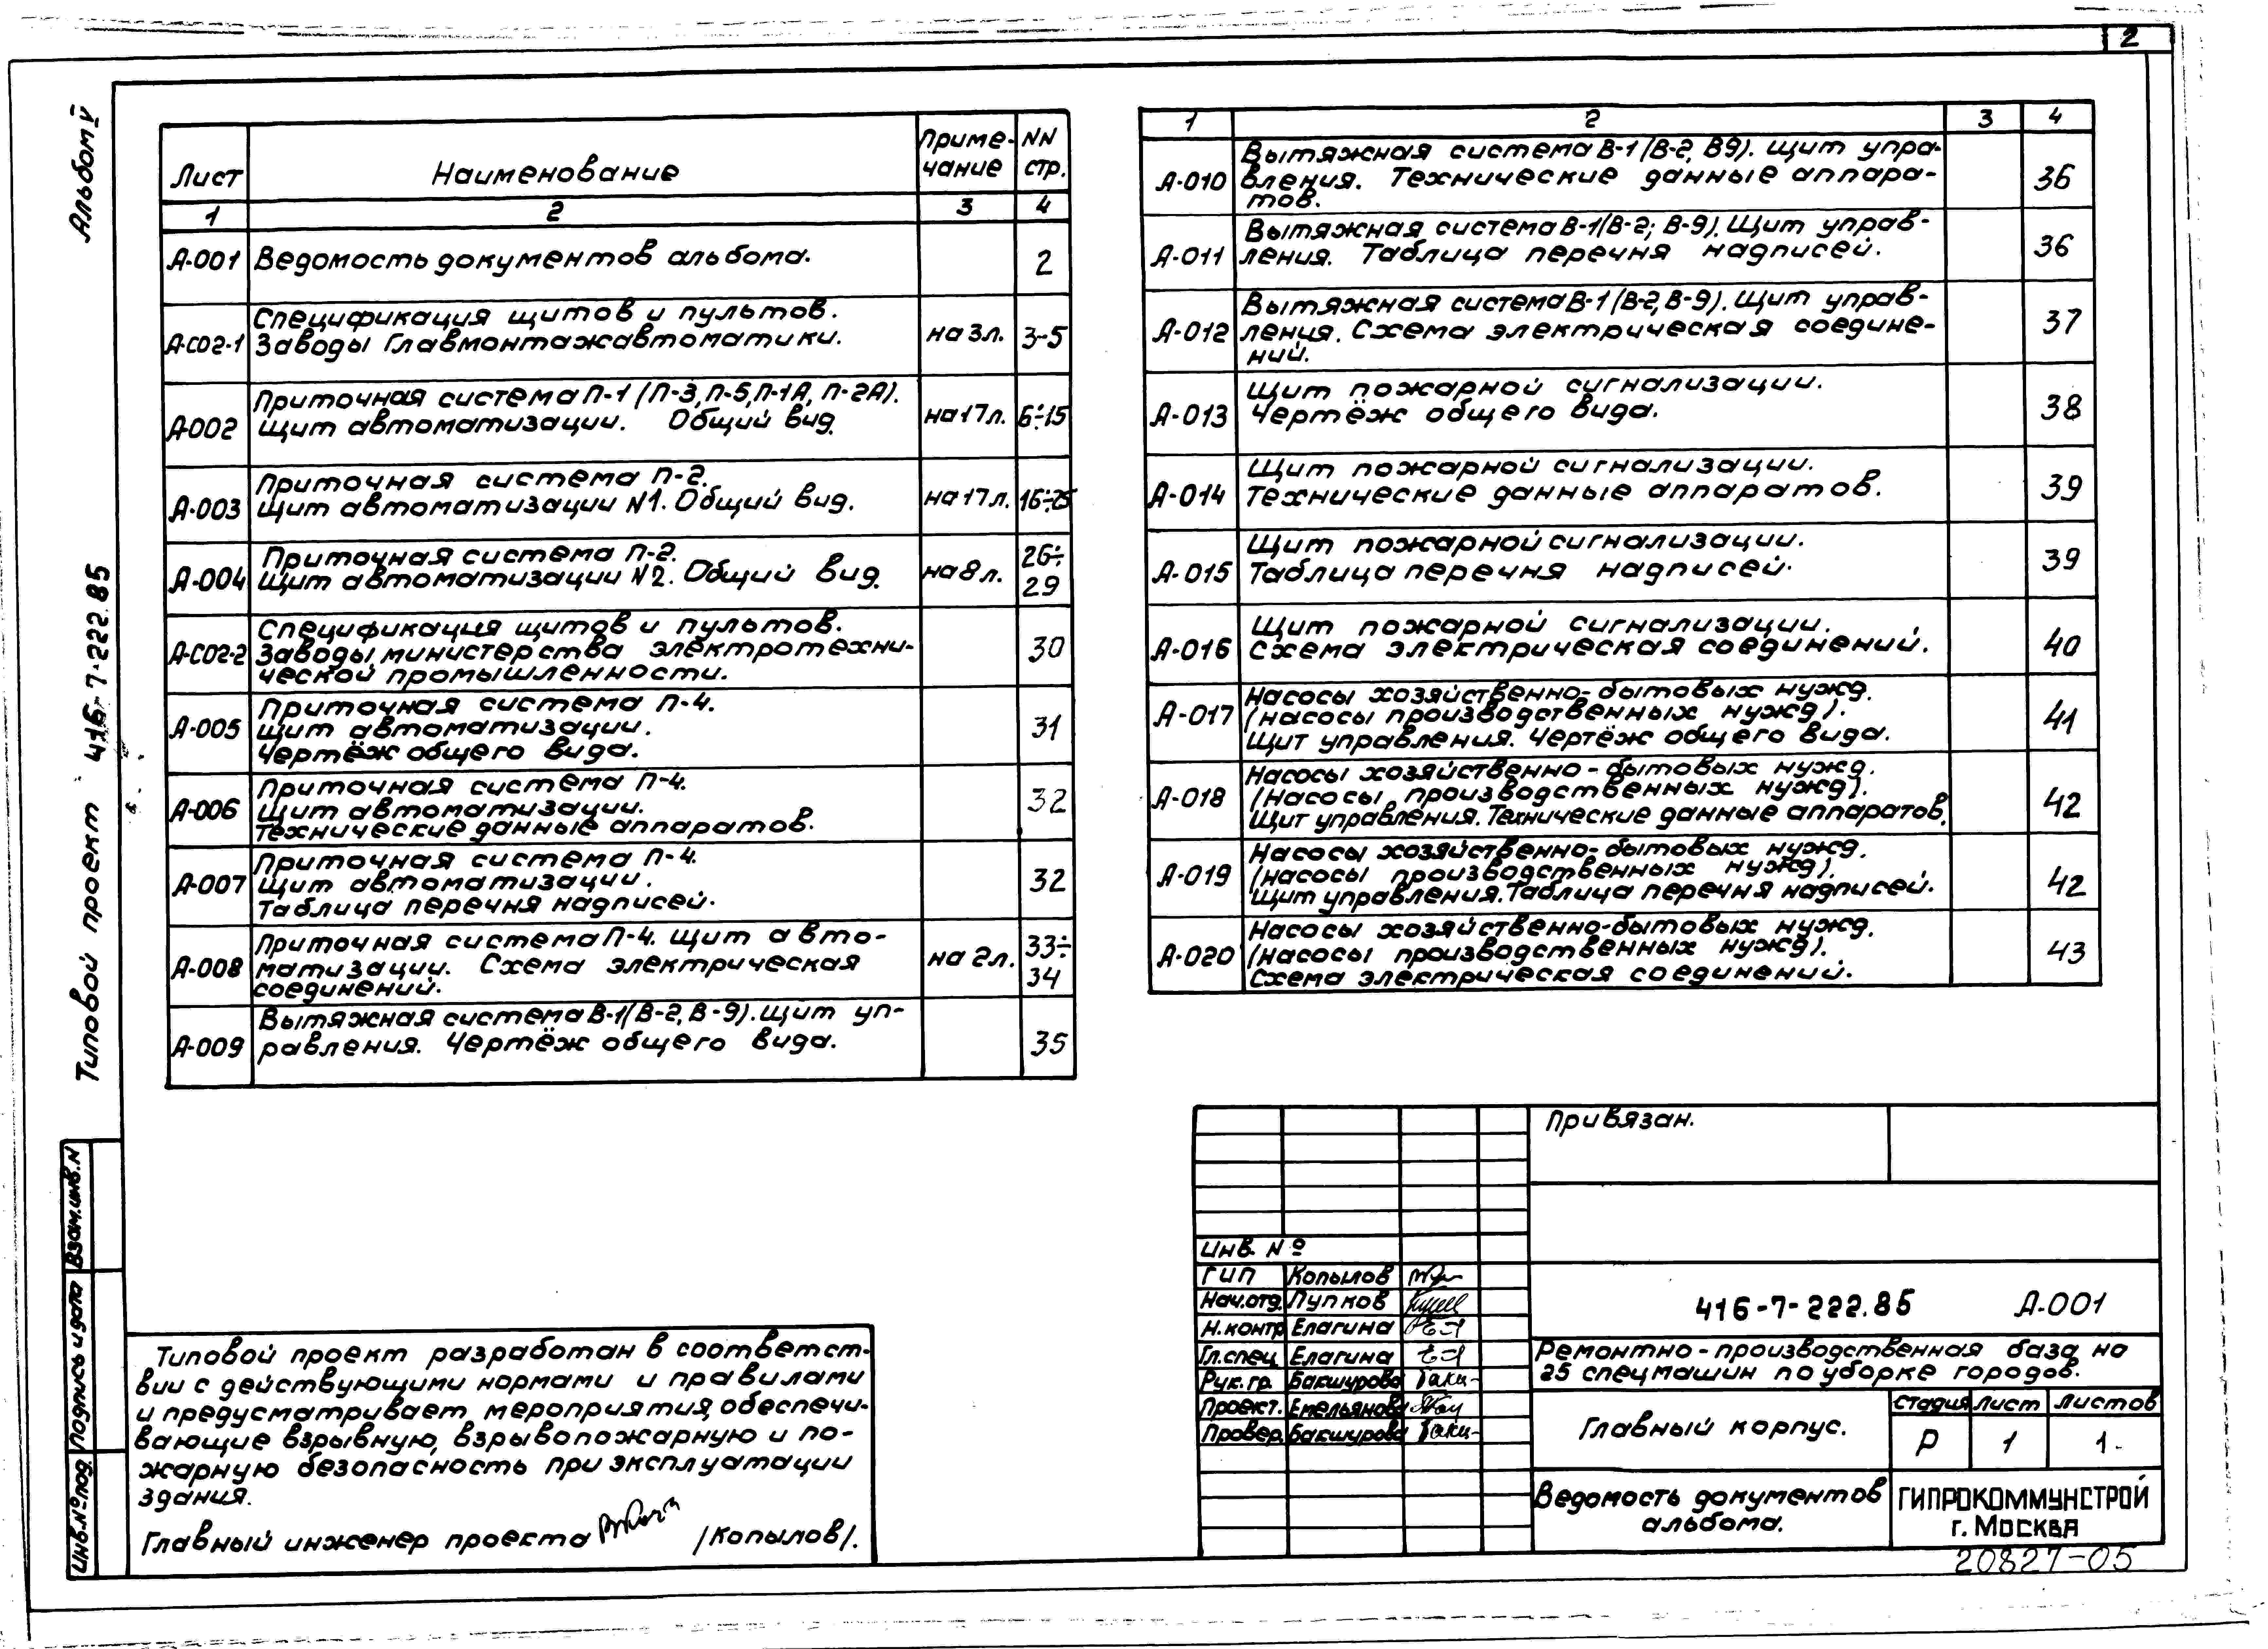 2
Альбом V
Типовой проект 416-7-222.85
Лист
Наименование
Приме-
чание
NN
стр.
1
2
3
4
А-001
Ведомость документов альбома.
2
А-СО2-1
Спецификация щитов и пультов.
Заводы Главмонтажавтоматики.
на 3л.
3-5
А-002
Приточная система П-1 (П-3, П-5, П-1А, П-2А).
Щит автоматизации. Общий вид.
на 17 л.
6÷15
А-003
Приточная система П-2.
Щит автоматизации N1. Общий вид.
на 17 л.
16÷25
А-004
Приточная система П-2.
Щит автоматизации N2. Общий вид.
на 8 л.
26÷
29
А-СО2-2
Спецификация щитов и пультов.
Заводы министерства электротехни-
ческой промышленности.
30
А-005
Приточная система П-4.
Щит автоматизации.
Чертёж общего вида.
31
А-006
Приточная система П-4.
Щит автоматизации.
Технические данные аппаратов.
32
А-007
Приточная система П-4.
Щит автоматизации.
Таблица перечня надписей.
32
А-008
Приточная система П-4. Щит авто-
матизации. Схема электрическая
соединений.
на 2л.
33÷
34
А-009
Вытяжная система В-1(В-2, В-9). Щит уп-
равления. Чертёж общего вида.
35
1
2
3
4
А-010
Вытяжная система В-1 (В-2, В9). Щит упра-
вления. Технические данные аппара-
тов.
36
А-011
Вытяжная система В-1(В-2; В-9). Щит управ-
ления. Таблица перечня надписей.
36
А-012
Вытяжная система В-1 (В-2, В-9). Щит управ-
ления. Схема электрическая соедине-
ний.
37
А-013
Щит пожарной сигнализации.
Чертёж общего вида.
38
А-014
Щит пожарной сигнализации.
Технические данные аппаратов.
39
А-015
Щит пожарной сигнализации.
Таблица перечня надписей.
39
А-016
Щит пожарной сигнализации.
Схема электрическая соединений.
40
А-017
Насосы хозяйственно-бытовых нужд.
(насосы производственных нужд).
Щит управления. Чертёж общего вида.
41
А-018
Насосы хозяйственно-бытовых нужд.
(насосы производственных нужд).
Щит управления. Технические данные аппаратов.
42
А-019
Насосы хозяйственно-бытовых нужд.
(насосы производственных нужд).
Щит управления. Таблица перечня надписей.
42
А-020
Насосы хозяйственно-бытовых нужд.
(насосы производственных нужд).
Схема электрическая соединений.
43
Взам.инв.N
Подпись и дата
Инв.№ под.
Типовой проект разработан в соответст-
вии с действующими нормами и правилами
и предусматривает мероприятия, обеспечи-
вающие взрывную, взрывопожарную и по-
жарную безопасность при эксплуатации
здания.
Главный инженер проекта /Копылов/.
Привязан.
Инв. №
ГИП Копылов
Нач.отд. Лупков
Н.контр Елагина
Гл.спец Елагина
Рук.гр. Бакшурова
Проект. Емельянова
Провер. Бакшурова
416-7-222.85 А-001
Ремонтно-производственная база на
25 спецмашин по уборке городов.
Главный корпус.
Стадия Лист Листов
Р 1 1.
Ведомость документов
альбома.
ГИПРОКОММУНСТРОЙ
г. Москва
20827-05